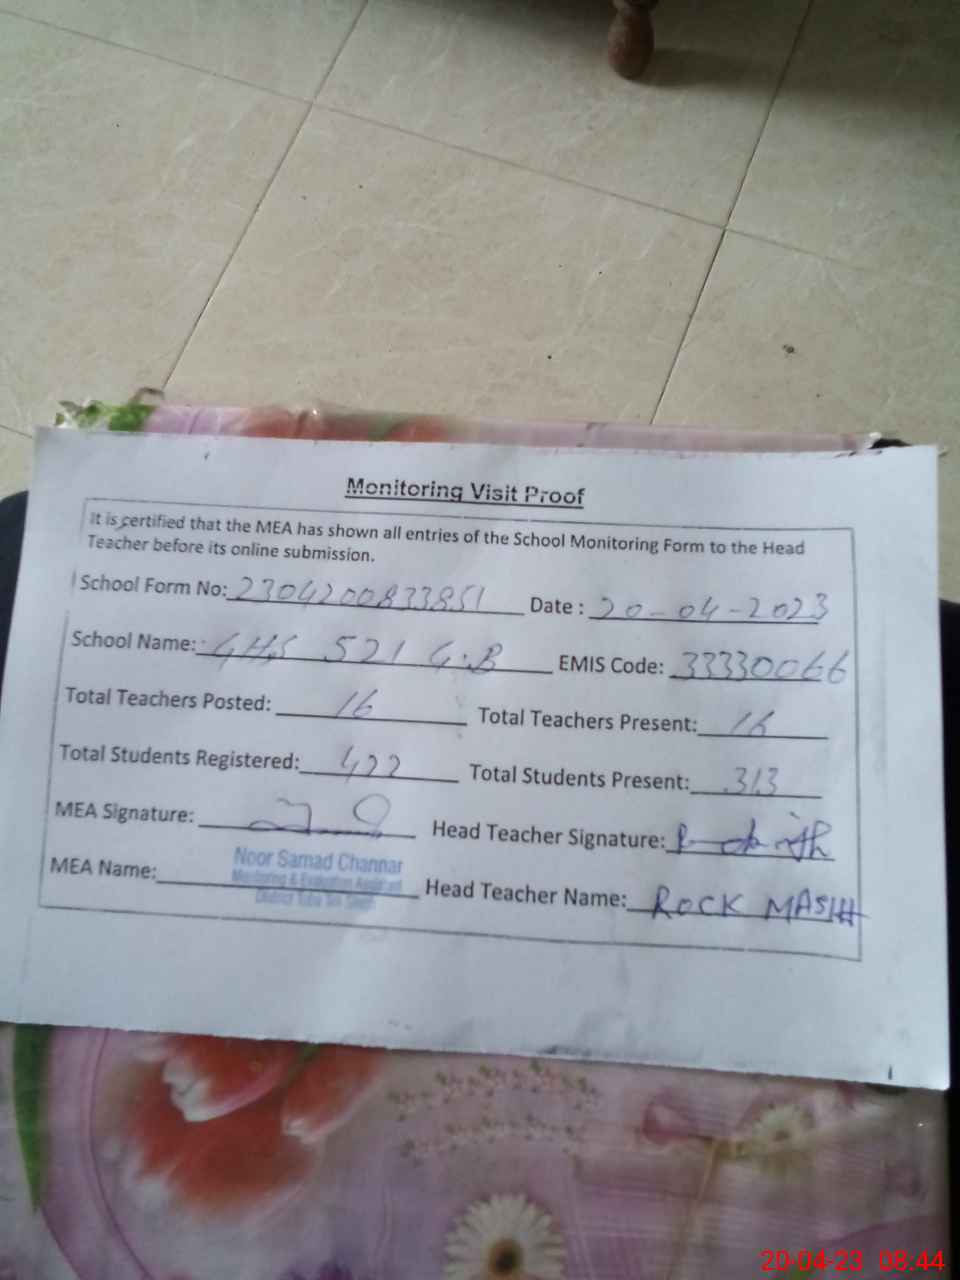 Monitoring Visit Proof
It is certified that the MEA has shown all entries of the School Monitoring Form to the Head
Teacher before its online submission.
School Form No: 2304200833851 Date : 20-04-2023
School Name: GHS 521 G.B EMIS Code: 33330066
Total Teachers Posted: 16 Total Teachers Present: 16
Total Students Registered: 422 Total Students Present: 313
MEA Signature: Head Teacher Signature:
Noor Samad Channar
MEA Name: Monitoring & Evaluation Assistant Head Teacher Name: ROCK MASIH
District Toba Tek Singh
20-04-23 08:44